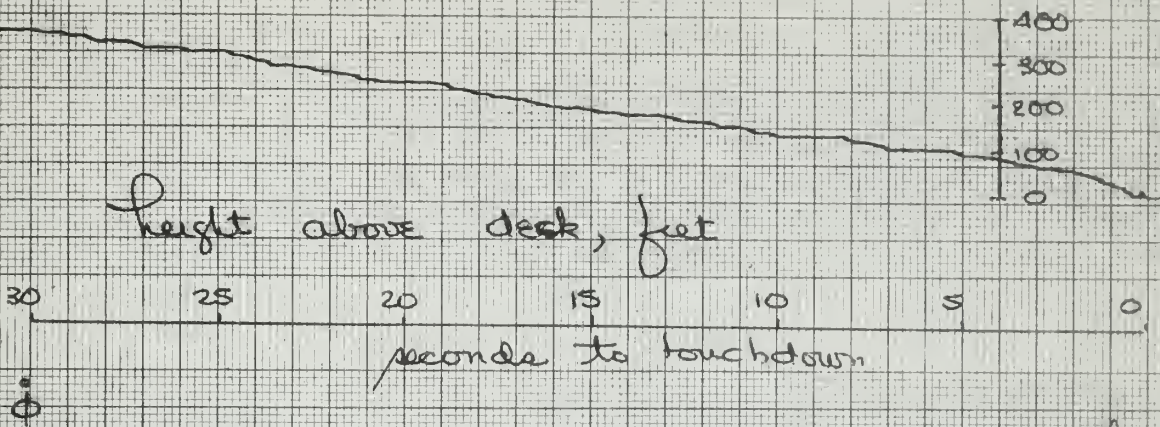 400
300
200
100
0
height above deck, feet
30 25 20 15 10 5 0
seconds to touchdown
φ̇